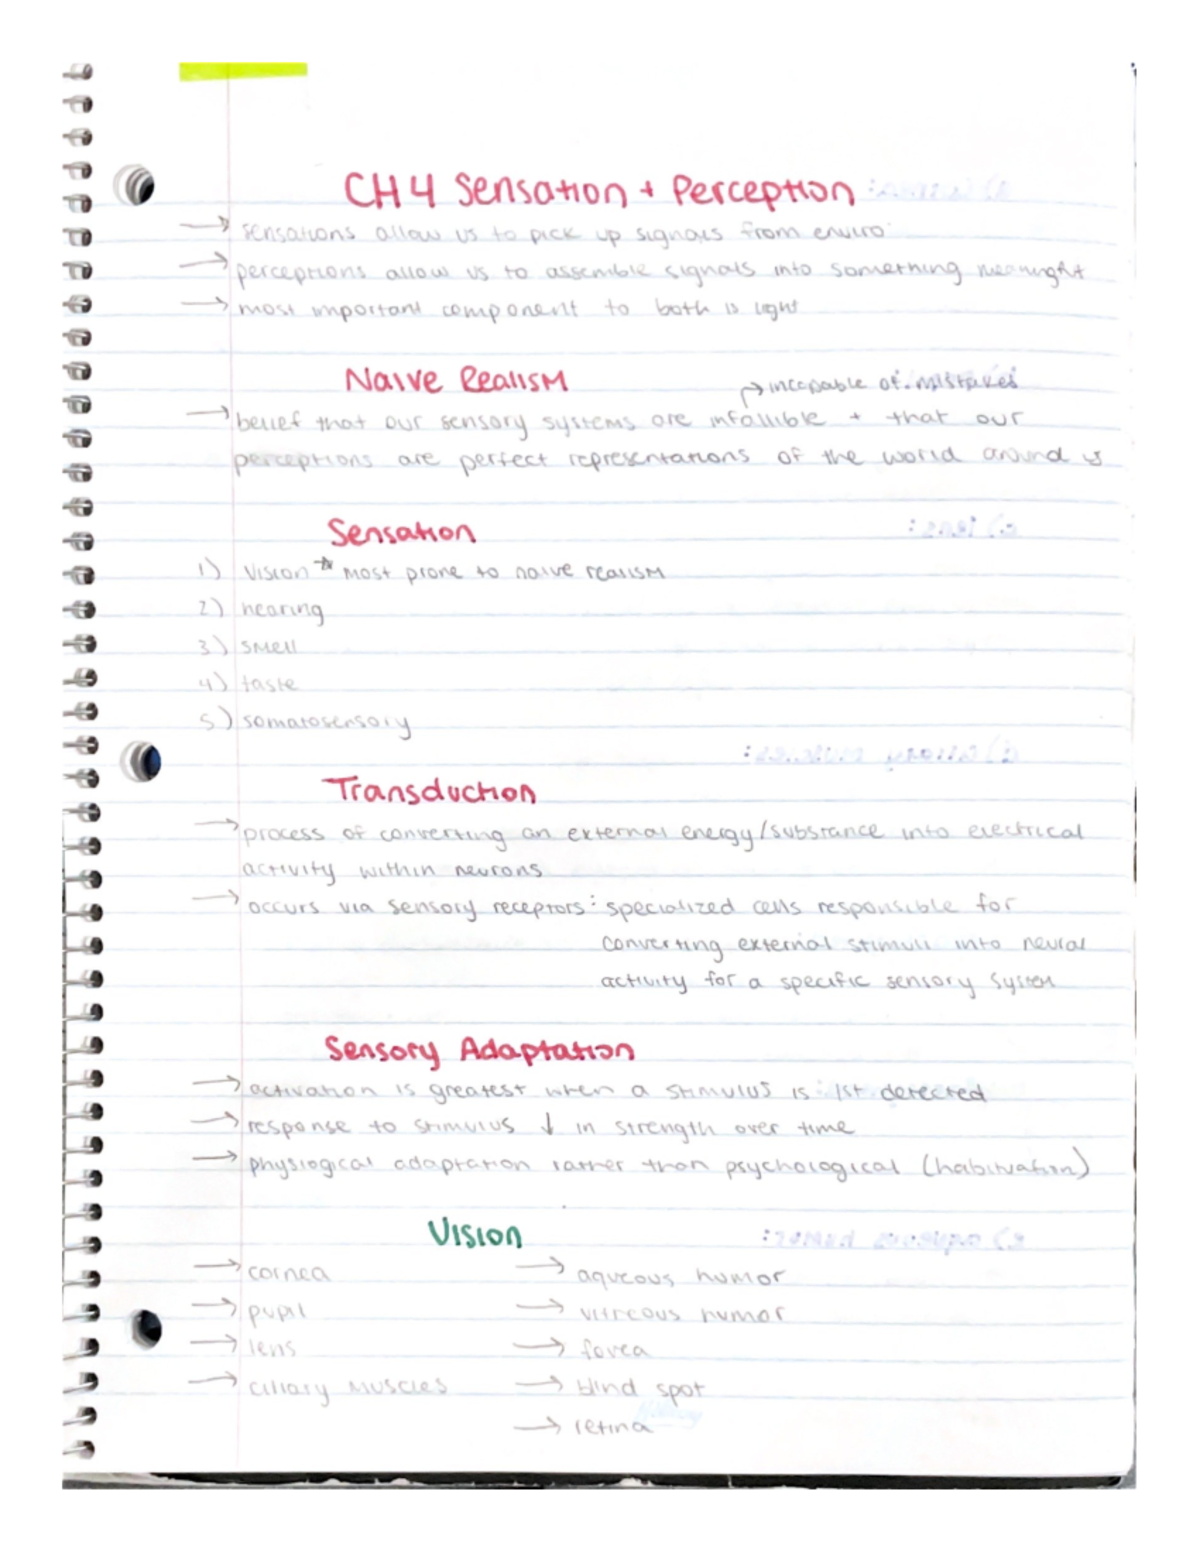 CH 4 Sensation + Perception
→ sensations allow us to pick up signals from enviro.
→ perceptions allow us to assemble signals into something meaningful
→ most important component to both is light
Naive Realism
→ incapable of mistakes
→ belief that our sensory systems are infallible + that our
perceptions are perfect representations of the world around us
Sensation
1) vision * most prone to naive realism
2) hearing
3) smell
4) taste
5) somatosensory
Transduction
→ process of converting an external energy/substance into electrical
activity within neurons
→ occurs via sensory receptors: specialized cells responsible for
converting external stimuli into neural
activity for a specific sensory system
Sensory Adaptation
→ activation is greatest when a stimulus is 1st detected
→ response to stimulus ↓ in strength over time
→ physiogical adaptation rather than psychological (habituation)
Vision
→ cornea → aqueous humor
→ pupil → vitreous humor
→ lens → fovea
→ ciliary muscles → blind spot
→ retina